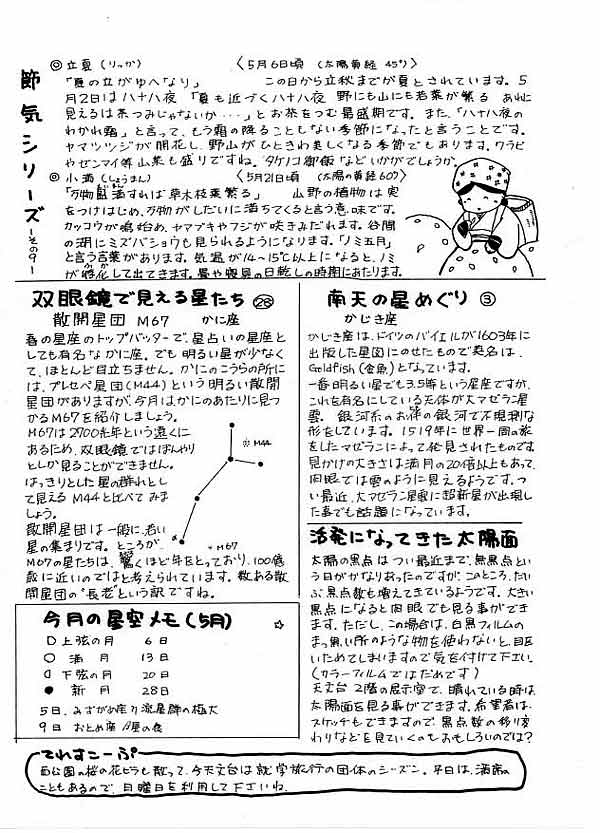 節気シリーズ
－その9－
◎立夏（りっか）　〈5月6日頃　（太陽黄経 45°）
「夏の立がゆへなり」　この日から立秋までが夏とされています。5
月2日は八十八夜「夏も近づく八十八夜 野にも山にも若葉が繁る あれに
見えるは茶つみじゃないか・・・」とお茶をつむ最盛期です。また、「八十八夜の
わかれ霜」と言って、もう霜の降ることもない季節になったと言うことです。
ヤマツツジが開花し、野山がひときわ美しくなる季節でもあります。ワラビ
やゼンマイ等山菜も盛りですね。タケノコ御飯などいかがでしょうか。
◎小満（しょうまん）　〈5月21日頃　（太陽の黄経60°）
「万物 満すれば草木枝葉繁る」　山野の植物は実
をつけはじめ、万物がしだいに満ちてくると言う意味です。
カッコウが鳴始め、ヤマブキやフジが咲きみだれます。谷間
の湖にミズバショウも見られるようになります。「ノミ五月」
と言う言葉があります。気温が14～15℃以上になると、ノミ
が孵化して出てきます。畳や寝具の日乾しの時期にあたります。
双眼鏡で見える星たち 28
散開星団 M67　かに座
春の星座のトップバッターで、星占いの星座と
しても有名なかに座。でも明るい星が少なく
て、ほとんど目立ちません。かにのこうらの所に
は、プレセペ星団(M44)という明るい散開
星団がありますが、今月は、かにのあたりに見つ
かるM67を紹介しましょう。
M67は2700光年という遠くに
あるため、双眼鏡ではぼんやり
としか見ることができません。
はっきりとした星の群れとし
て見えるM44と比べてみま
しょう。
散開星団は一般に、若い
星の集まりです。ところが、
M67の星たちは、驚くほど年をとっており、100億
歳に近いのではと考えられています。数ある散
開星団の"長老"という訳ですね。
M44
α
M67
南天の星めぐり ③
かじき座
かじき座は、ドイツのバイエルが1603年に
出版した星図にのせたもので英名は、
Goldfish(金魚)となっています。
一番明るい星でも3.5等という星座ですが、
これを有名にしている天体が大マゼラン星
雲。銀河系のお伴の銀河で不規則な
形をしています。1519年に世界一周の旅
をしたマゼランによって発見されたものです。
見かけの大きさは満月の20倍以上もあって、
肉眼では雲のように見えるようです。つ
い最近、大マゼラン星雲に超新星が出現し
た事でも話題になっています。
活発になってきた太陽面
太陽の黒点はつい最近まで、無黒点とい
う日がかなりあったのですが、このところ、だい
ぶ黒点数も増えてきているようです。大きい
黒点になると肉眼でも見る事ができ
ます。ただし、この場合は、白黒フィルムの
まっ黒い所のような物を使わないと、目を
いためてしまいますので気を付けて下さい。
（カラーフィルムではだめです）
天文台2階の展示室で、晴れている時は、
太陽面を見る事ができます。希望者は、
スケッチもできますので、黒点数の移り変
わりなどを見ていくのもおもしろいのでは？
今月の星空メモ（5月）
上弦の月　6日
満月　13日
下弦の月　20日
新月　28日
5日、みずがめ座η流星群の極大
9日　おとめ座 星の食
てれすこーぷ
西公園の桜の花ビラも散って、今天文台は就学旅行の団体のシーズン。平日は、満席の
こともあるので、日曜日を利用して下さいね。